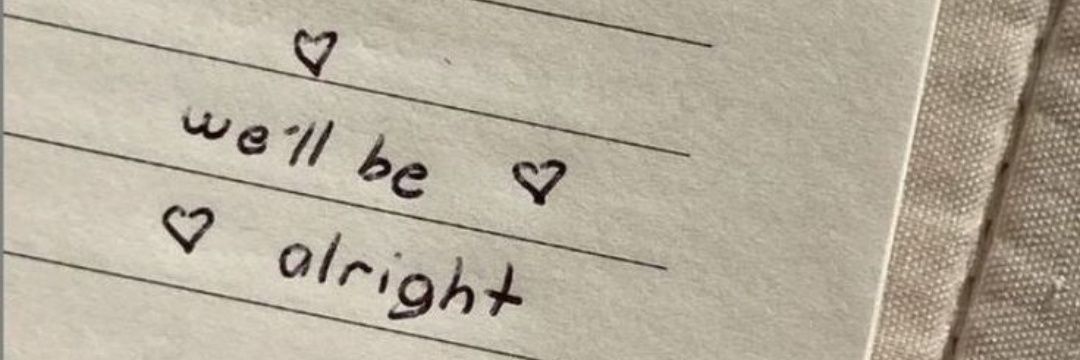 ♡
we'll be ♡
♡ alright